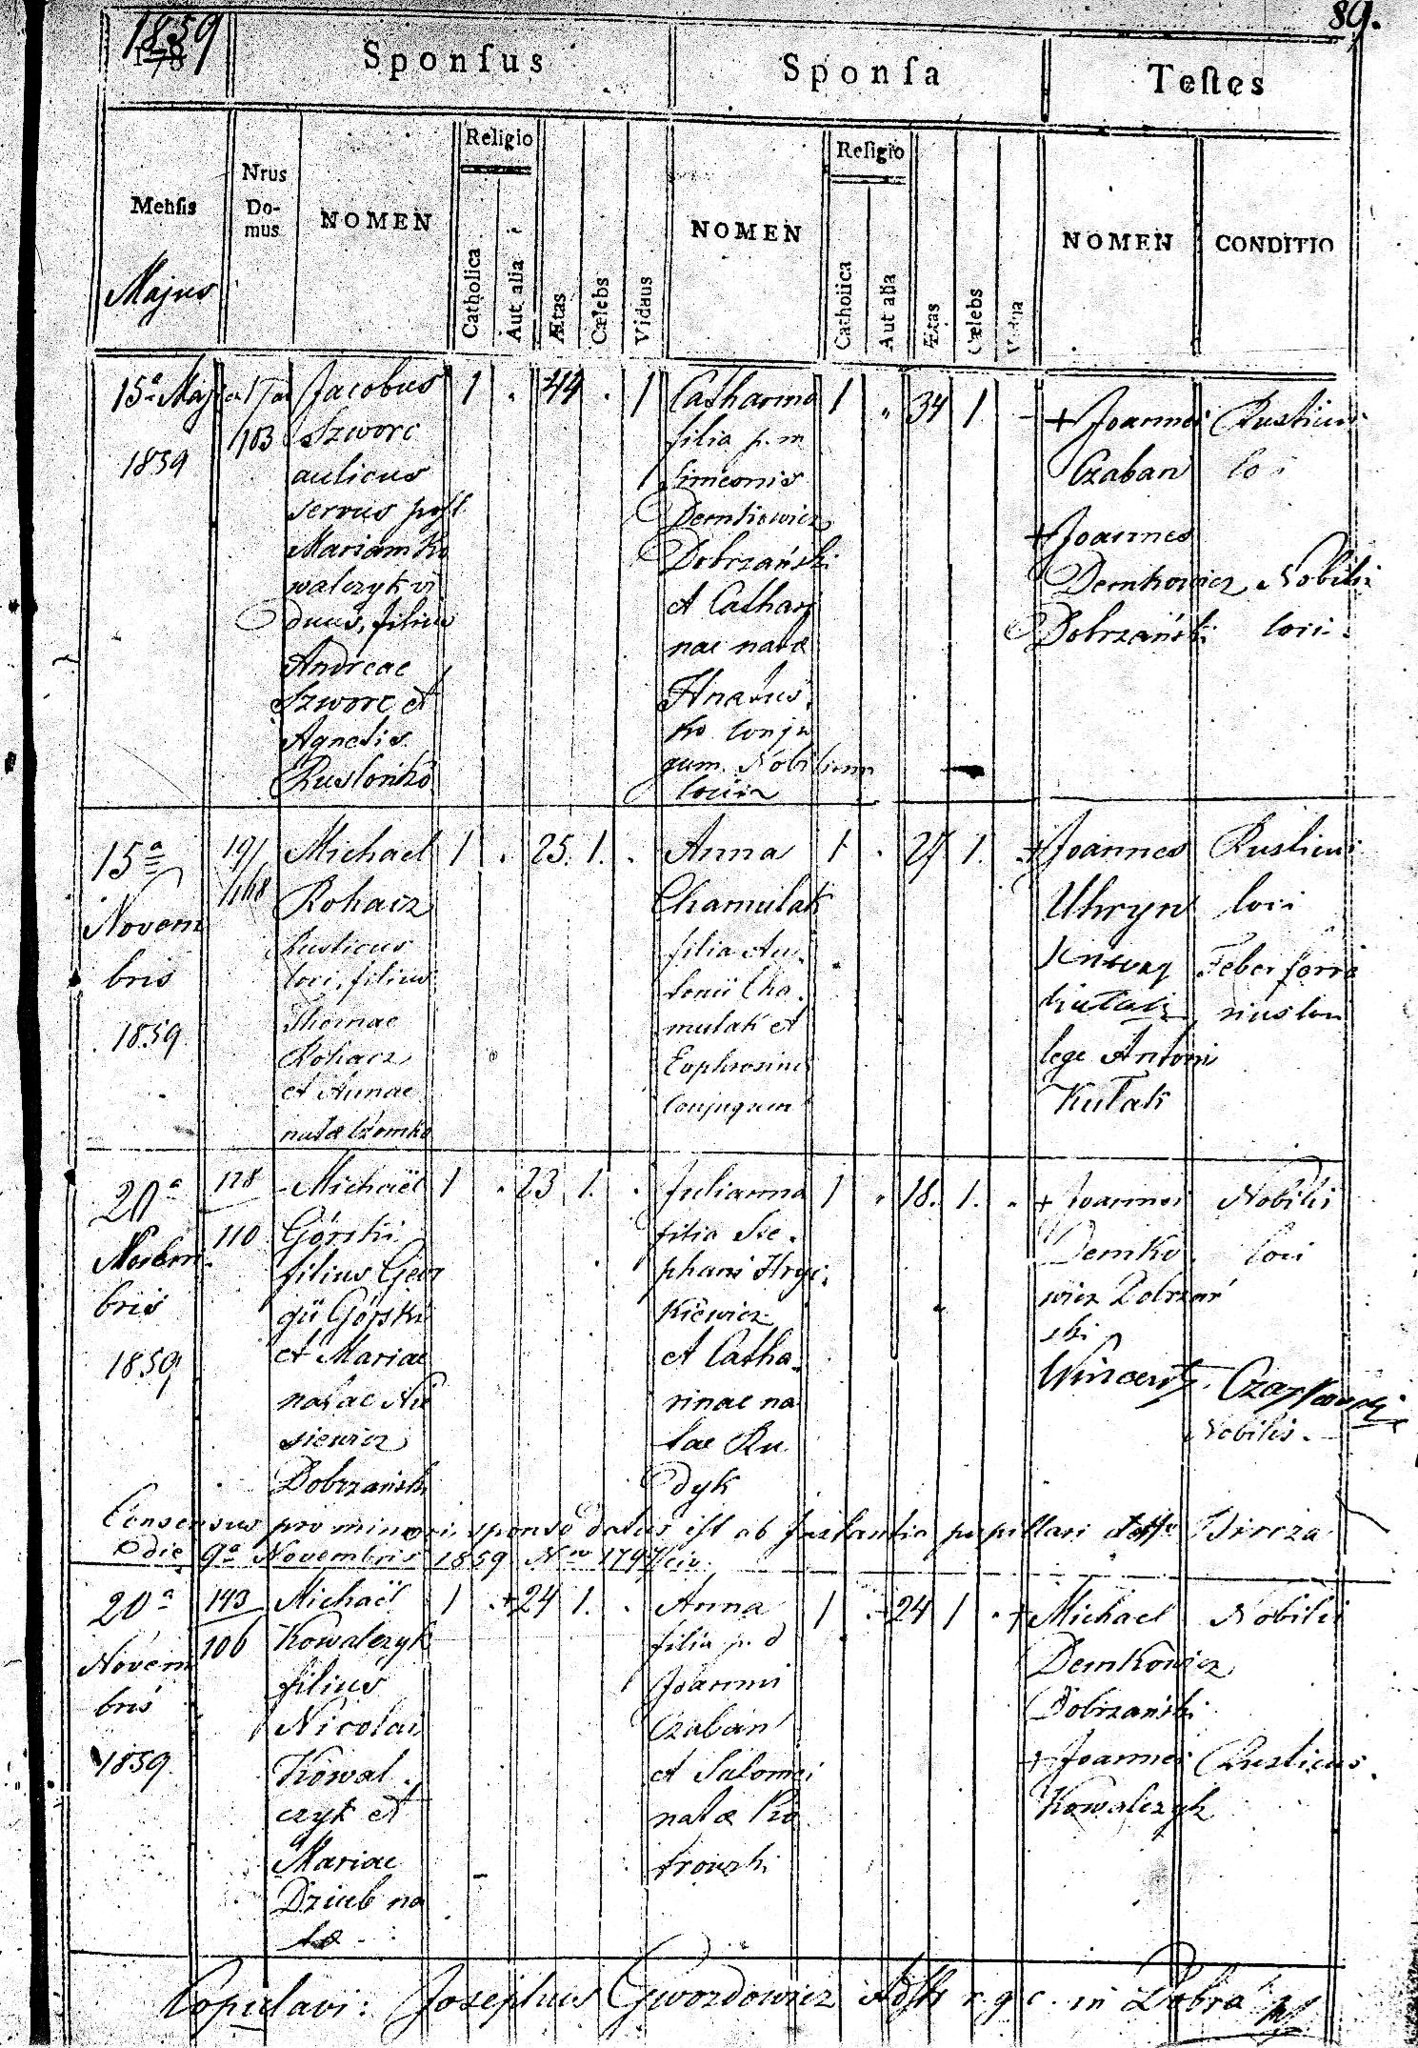 1859
89.
Sponſus
Sponſa
Teſtes
Menſis
Majus
Nrus
Do-
mus
NOMEN
Religio
Catholica
Aut alia
Ætas
Cælebs
Viduus
NOMEN
Religio
Catholica
Aut alia
Ætas
Cælebs
Vidua
NOMEN
CONDITIO
15ª Maj
1859
103
Jacobus
Szworc
aulicus
servus post
Mariam Ko
walczyk vi
duus, filius
Andreae
Szworc et
Agnetis
1 . 44 . 1
Catharina
filia p. m
Simeonis
Demkowicz
Dobrzański
et Cathari
nae natae
Hnatus
ko conju
gum Nobilium
1 . 34 1 -
+ Joannes
Czaban
+ Joannes
Demkowicz
Dobrzański
Rusticus
loci
Nobilis
loci
15ª
Novem
bris
1859
191
168
Michael
Rohacz
Rusticus
loci, filius
Thomae
Rohacz
et Annae
natae
1 . 25. 1. .
Anna
Chamulak
filia An
tonii Cha
mulak et
Euphrosinae
conjugum
1 . 27 1.
+ Joannes
Uhryn
lege Antoni
Kułak
Rusticus
loci
Feber ferra
rius loci
20ª
Novem
bris
1859
128
110
Michaël
Górski
filius Geor
gii Górski
et Mariae
natae
siewicz
Dobrzański
1 . 23 1. .
Julianna
filia Ste
phani Hryc
kiewicz
et Catha
rinae na
tae Ru
dyk
1 . 18. 1. .
+ Joannes
Demko
wicz Dobrzań
ski
Wincenty Czaykowski
Nobilis
loci
Nobilis.
Consensus pro minori sponso datus est ab Instantia pupillari Bircza
die 9ª Novembris 1859 Nro 1797/civ.
20ª
Novem
bris
1859
143
106
Michaël
Kowalczyk
filius
Nicolai
Kowal
czyk et
Mariae
Dziub na
tae
1 . + 24 1. .
Anna
filia p. d
Joannis
Czaban
et Salomei
natae Pio
trowski
1 . 24 1 .
+ Michael
Demkowicz
Dobrzański
+ Joannes
Kowalczyk
Nobilis
Rusticus.
Copulavi: Josephus Gwozdowicz r. g. c. in Dobra